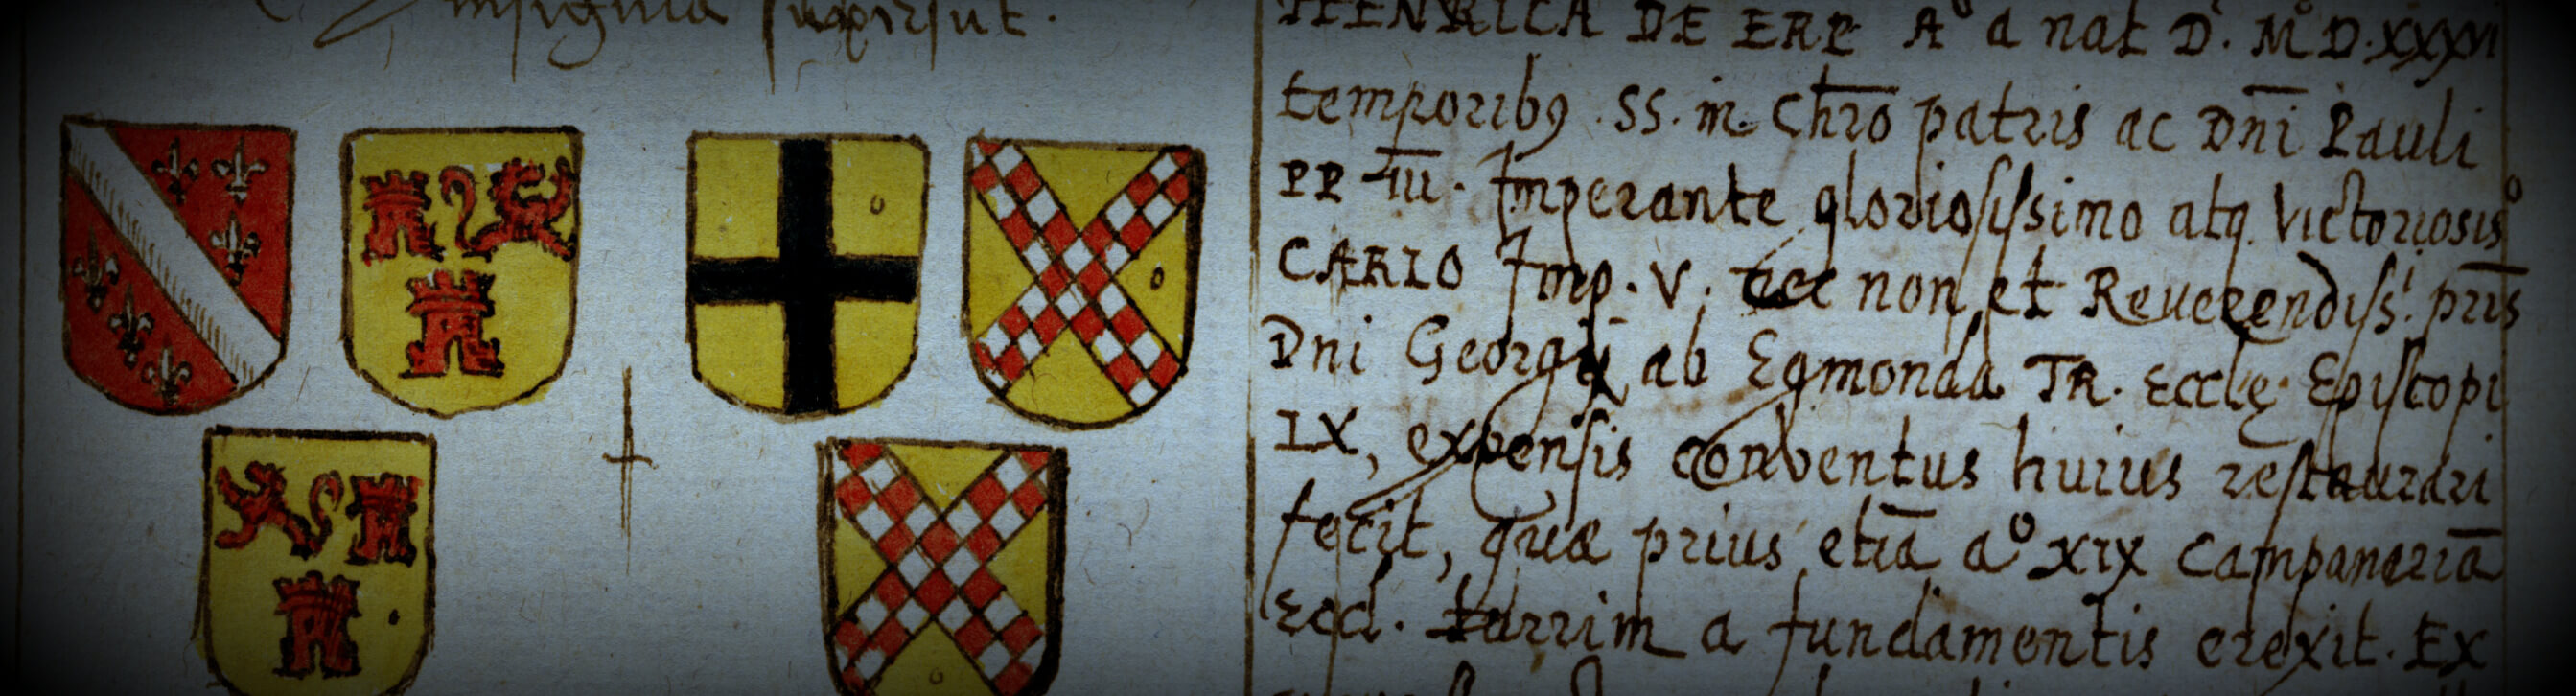 Insignia supersut.
HENRICA DE ERP Aº a nat Dⁱ. Mº D. XXXVI
temporibꝯ . SS. in Chr̄o patris ac Dn̄i Pauli
PP IIĪ. Imperante gloriosissimo atq. Victoriosisº
CARLO Imp. V. nec non et Reuerendissⁱ. pr̄is
Dni Georgij ab Egmonda TR. Eccle. Episcopi
IX, expensis conventus huius restaurari
fecit, quæ prius etiā aº XIX campanariā
Eccl. turrim a fundamentis erexit. Ex